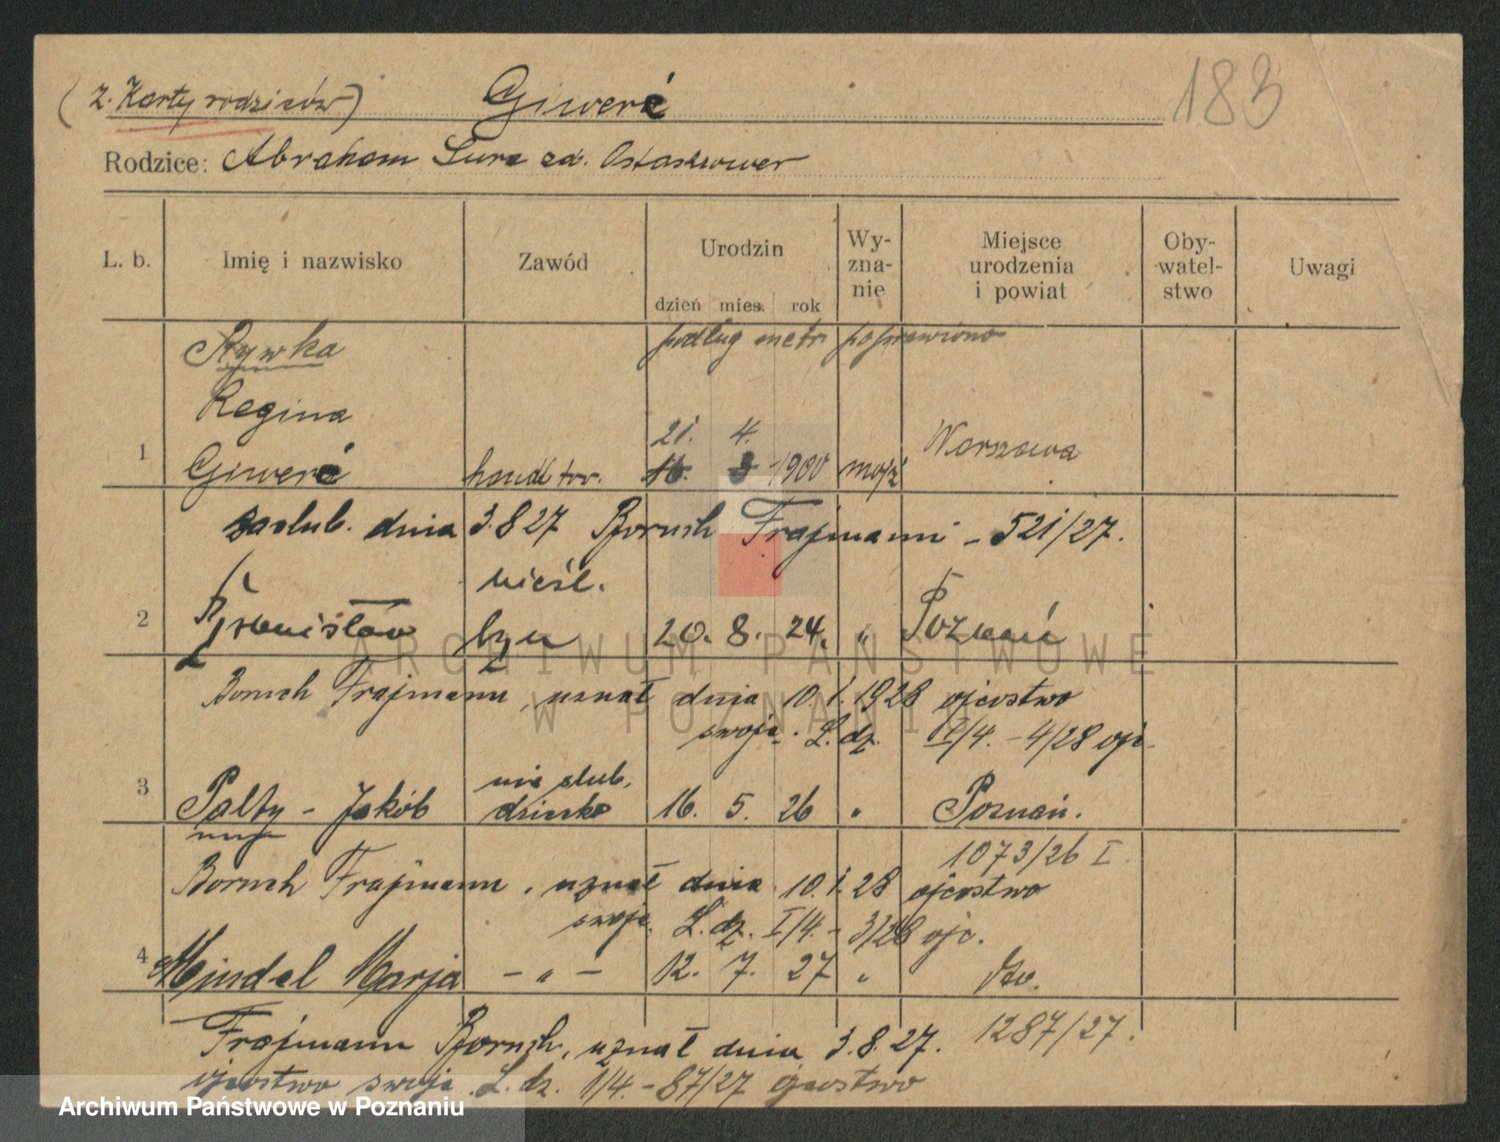 (z. Karty rodziców) Giwerc 183
Rodzice: Abraham Sura zd. Ostaszewer
L. b. Imię i nazwisko Zawód Urodzin dzień mies. rok Wy-zna-nie Miejsce urodzenia i powiat Oby-watel-stwo Uwagi
Rywka podług metr. poprawiono
Regina
21. 4.
1 Giwerc handl tow. 16. 3 1900 mojż Warszawa
zaślub. dnia 3.8 27 Boruch Frajmann - 521/27.
nieśl.
2 Bronisław syn 20. 8. 24. " Poznań
Boruch Frajmann, uznał dnia 10. 1. 1928 ojcostwo
swoje. L. dz. I/4. - 4/28 ojc.
nie ślub.
3 Palty - Jakób dziecko 16. 5. 26 " Poznań.
1073/26 I.
Boruch Frajmann, uznał dnia 10. 1. 28 ojcostwo
swoje. L. dz. I/4. - 3/28 ojc.
4 Mindel Marja - " - 12. 7. 27 " dto.
Frajmann Boruch, uznał dnia 3. 8. 27. 1287/27.
ojcostwo swoje L. dz. 1/4. - 87/27 ojcostwo
ARCHIWUM PAŃSTWOWE
W POZNANIU
Archiwum Państwowe w Poznaniu